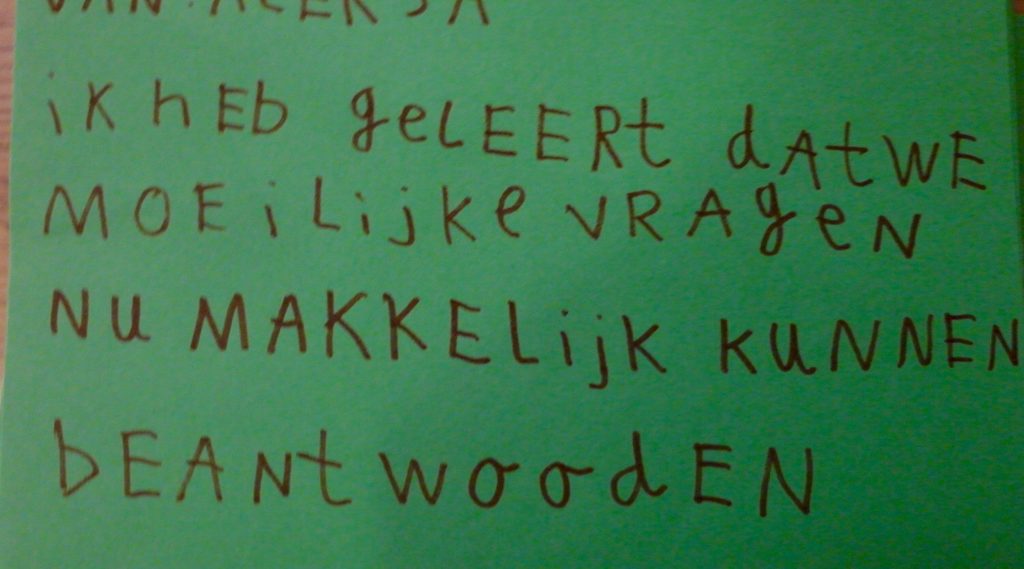 VAN
iK hEb geLEERt dAtWE
MOEiLijke VRAgeN
NU MAKKELijK KUNNEN
bEANtwoodEN